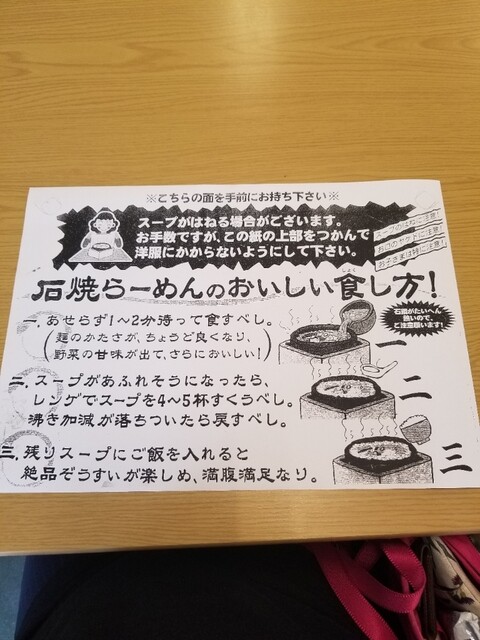 ※こちらの面を手前にお持ち下さい※
スープがはねる場合がございます。
お手数ですが、この紙の上部をつかんで
洋服にかからないようにして下さい。
スープのはねに注意!
お子さまは特に注意!
石焼らーめんのおいしい食し方!
しょく
石鍋がたいへん
熱いので、
ご注意願います!
一、あせらず1〜2分待って食すべし。
(麺のかたさが、ちょうど良くなり、
野菜の甘味が出て、さらにおいしい!)
一
二、スープがあふれそうになったら、
レンゲでスープを4〜5杯すくうべし。
沸き加減が落ちついたら戻すべし。
二
三、残りスープにご飯を入れると
絶品ぞうすいが楽しめ、満腹満足なり。
三